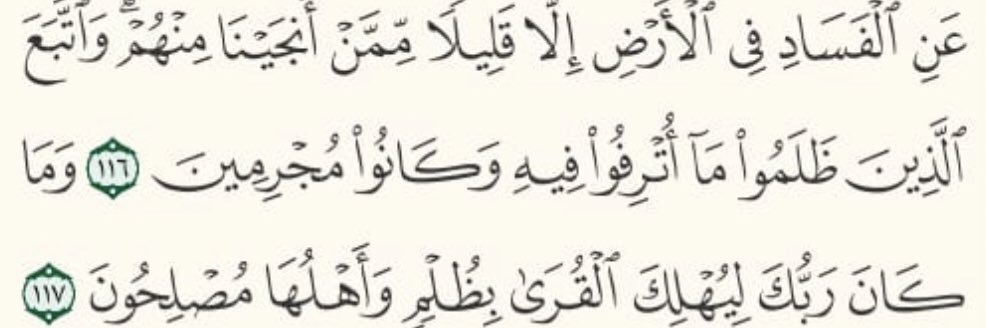 عَنِ ٱلْفَسَادِ فِى ٱلْأَرْضِ إِلَّا قَلِيلًا مِّمَّنْ أَنجَيْنَا مِنْهُمْ ۗ وَٱتَّبَعَ
ٱلَّذِينَ ظَلَمُوا۟ مَآ أُتْرِفُوا۟ فِيهِ وَكَانُوا۟ مُجْرِمِينَ ١١٦ وَمَا
كَانَ رَبُّكَ لِيُهْلِكَ ٱلْقُرَىٰ بِظُلْمٍ وَأَهْلُهَا مُصْلِحُونَ ١١٧